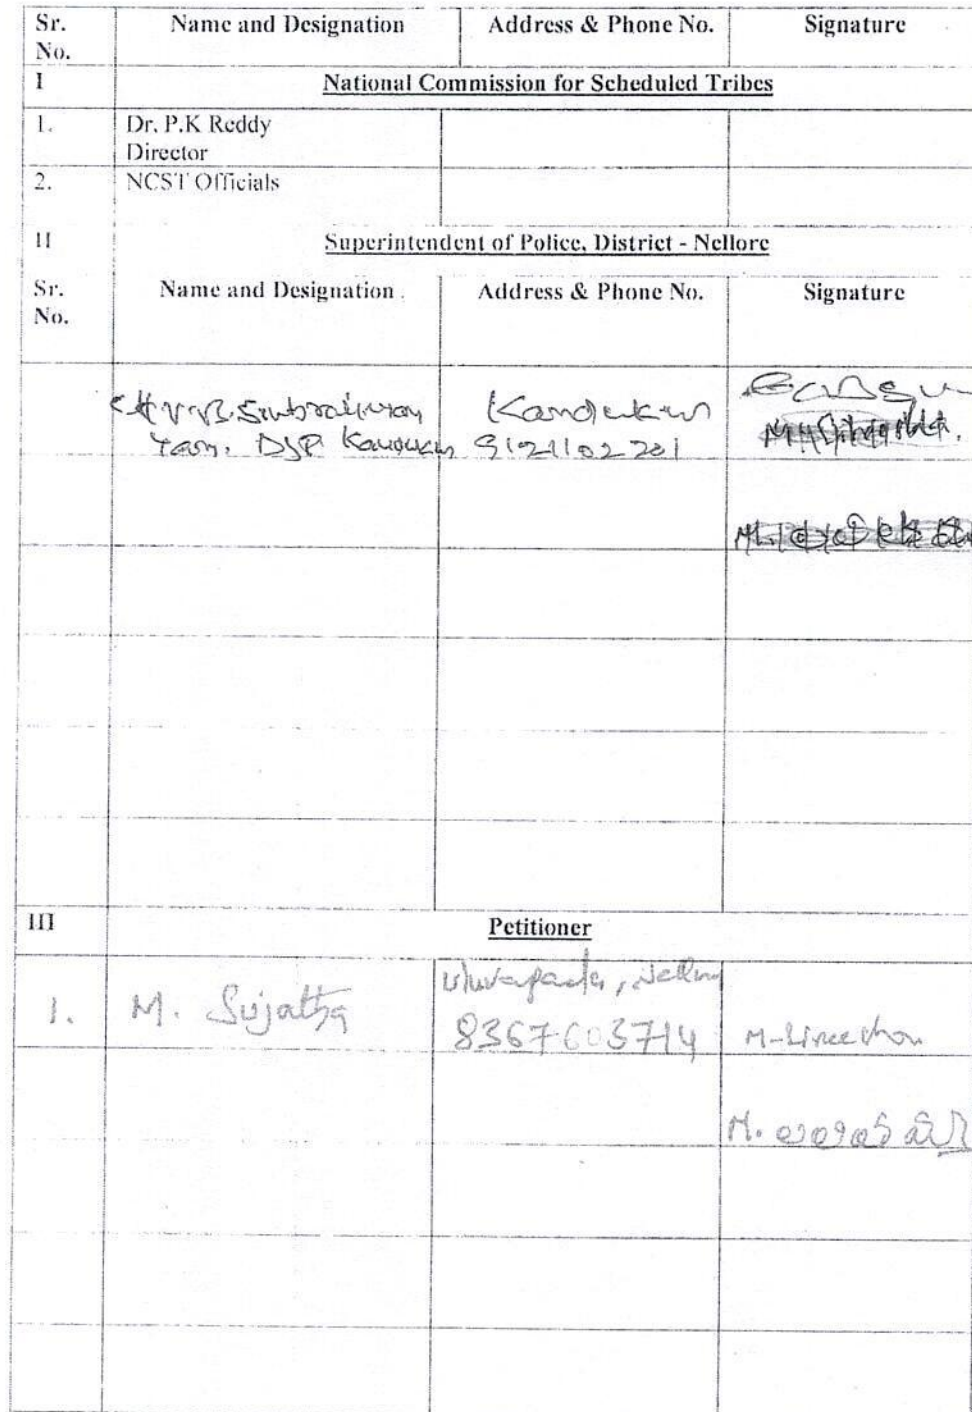 Sr. No. Name and Designation Address & Phone No. Signature
I National Commission for Scheduled Tribes
1. Dr. P.K Reddy
Director
2. NCST Officials
II Superintendent of Police, District - Nellore
Sr. No. Name and Designation Address & Phone No. Signature
DSP
9121102201
III Petitioner
1. M. Sujatha
8367603714
M.